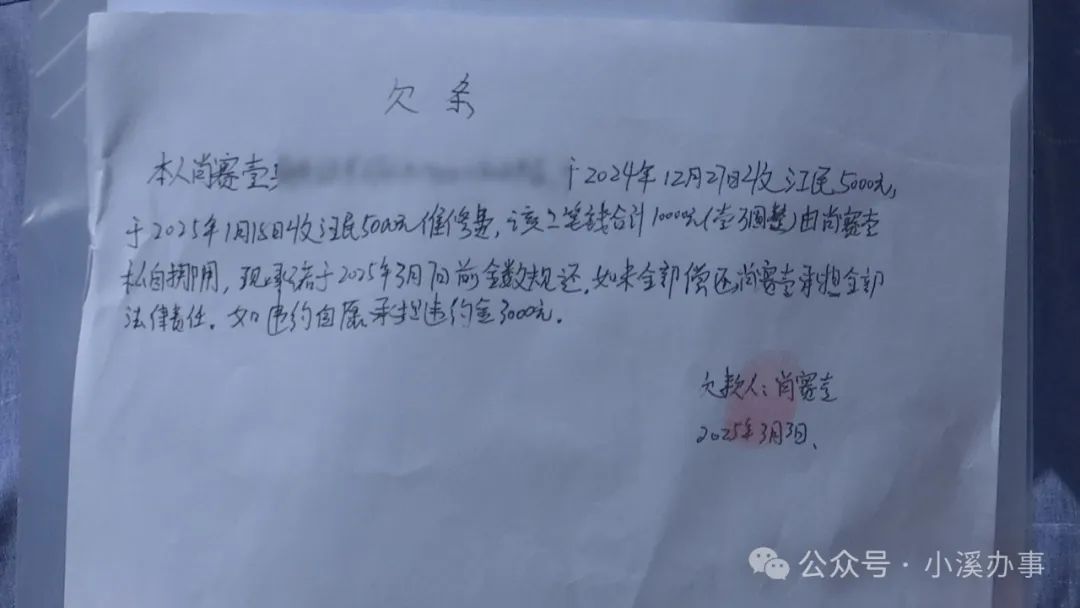 欠条
本人肖赛壹 于2024年12月27日收江民5000元,
于2025年1月15日收江民5000元维修费,该二笔钱合计10000元(壹万圆整)由肖赛壹
私自挪用,现承诺于2025年3月7日前全数规还,如未全部偿还肖赛壹承担全部
法律责任。如违约自愿承担违约金3000元。
欠款人:肖赛壹
2025年3月3日、
公众号·小溪办事